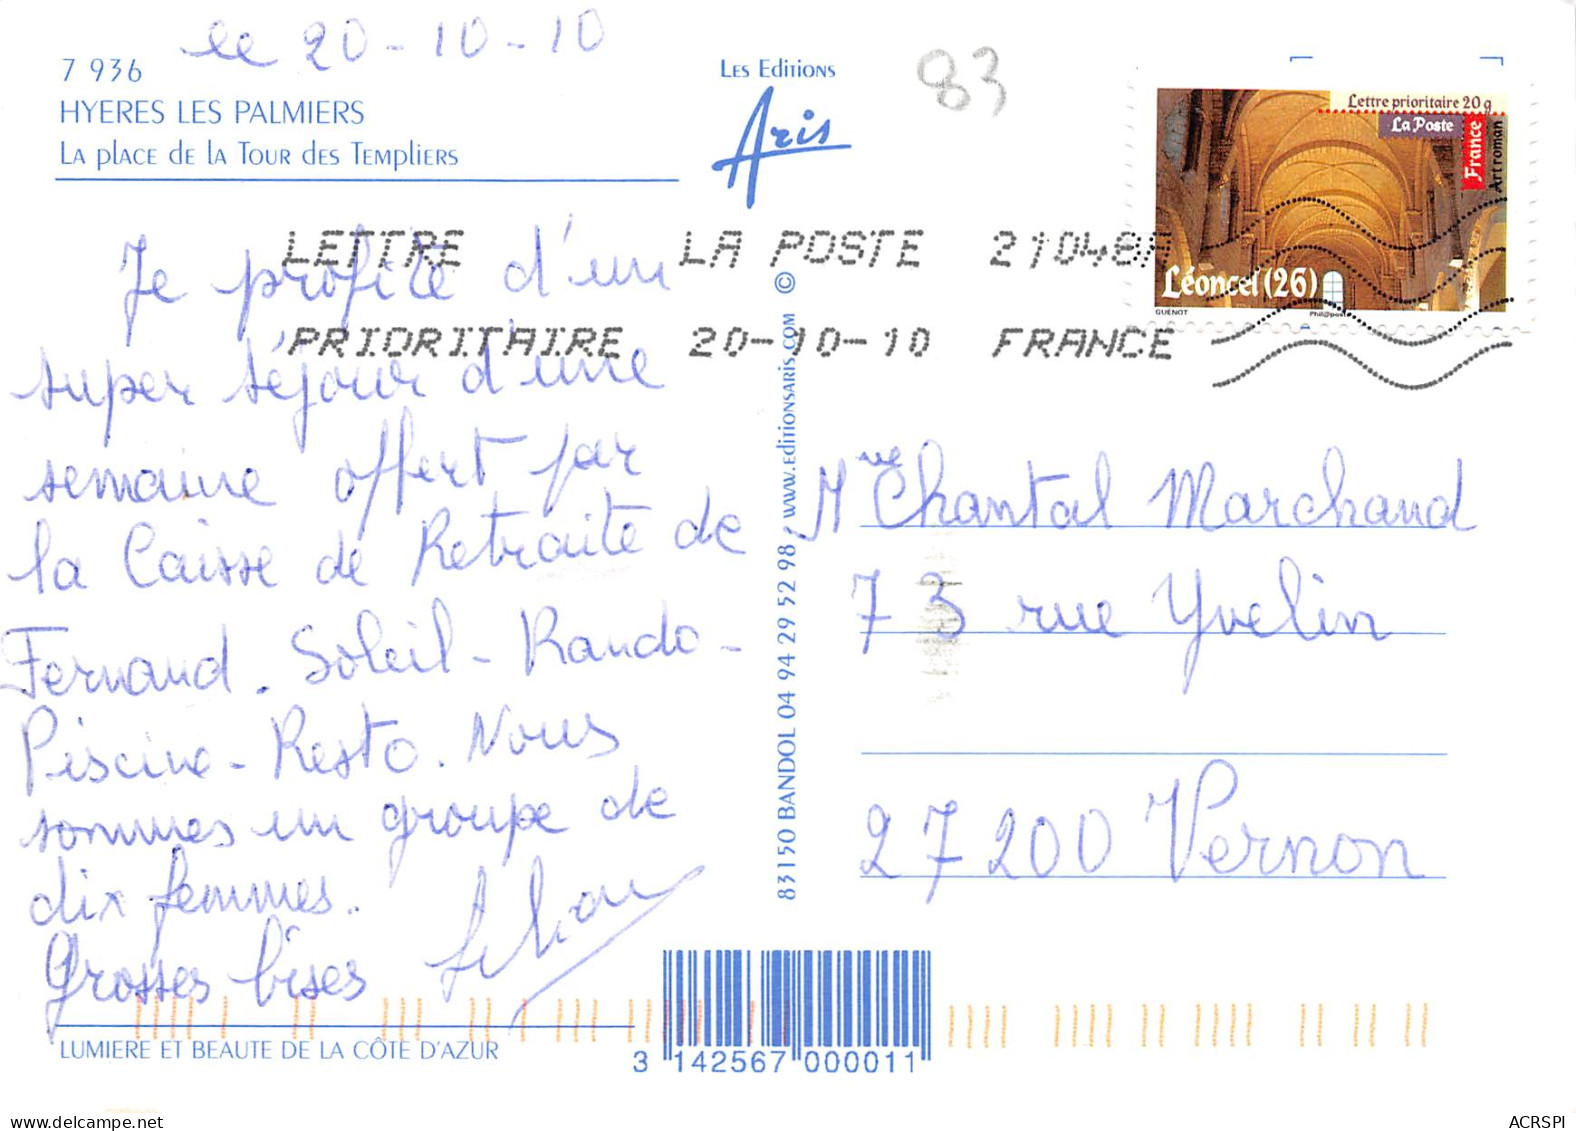 le 20-10-10
7 936
HYERES LES PALMIERS
La place de la Tour des Templiers
Les Editions
Aris
83
Lettre prioritaire 20 g
La Poste
France
Art roman
Léoncel (26)
GUÉNOT
Phil@poste
LETTRE LA POSTE 21048A
PRIORITAIRE 20-10-10 FRANCE
Je profite d'un
super séjour d'une
semaine offert par
la Caisse de Retraite de
Fernand. Soleil - Rando -
Piscine - Resto. Nous
sommes un groupe de
dix femmes.
Grosses bises
83150 BANDOL 04 94 29 52 98 www.editionsaris.com ©
Mme Chantal Marchand
73 rue Yvelin
27200 Vernon
LUMIERE ET BEAUTE DE LA CÔTE D'AZUR
3 142567 000011
ACRSPI